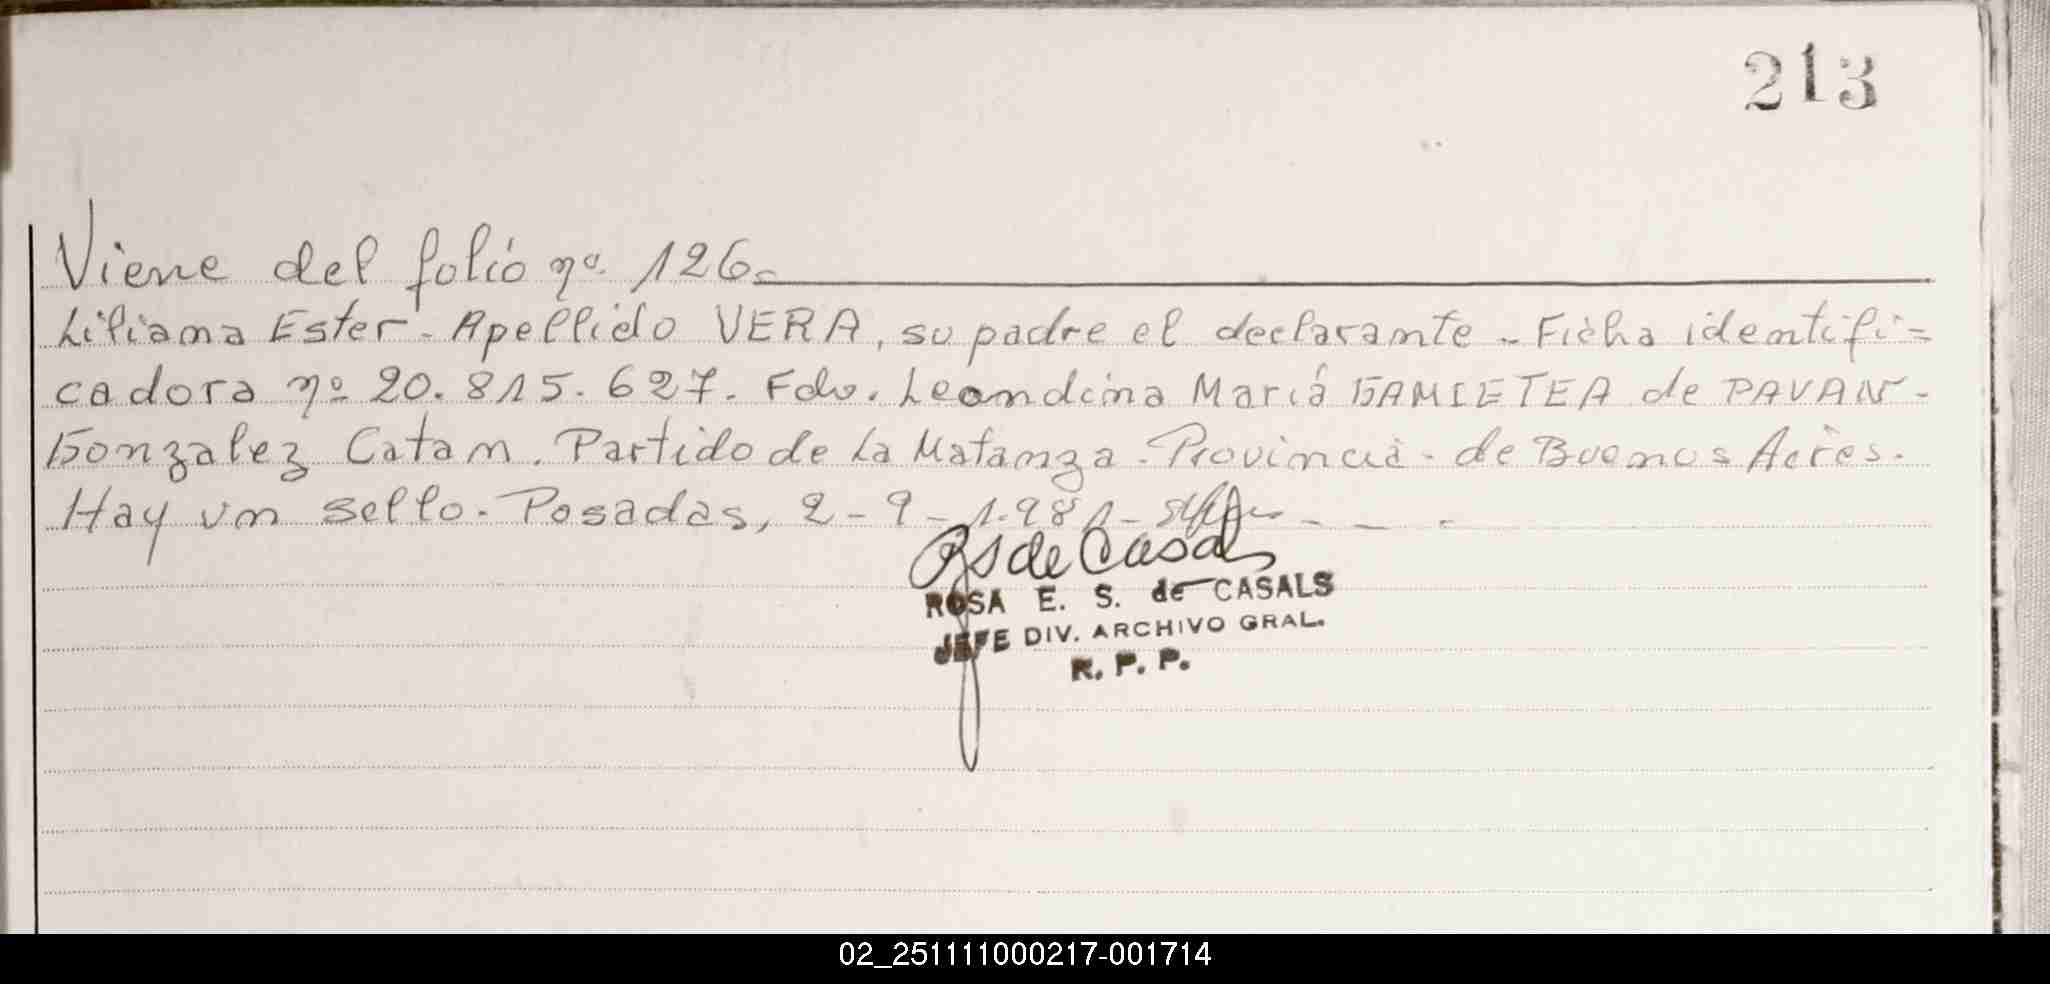 213
Viene del folio nº. 126.
Liliana Ester - Apellido VERA, su padre el declarante - Ficha identifi=
cadora nº 20.815.627. Fdo. Leondina María GAMIETEA de PAVAN -
Gonzalez Catam. Partido de La Matanza - Provincia - de Buenos Aires.
Hay un sello - Posadas, 2 - 9 - 1.981 -
RS de Casals
ROSA E. S. de CASALS
JEFE DIV. ARCHIVO GRAL.
R. P. P.
02_251111000217-001714